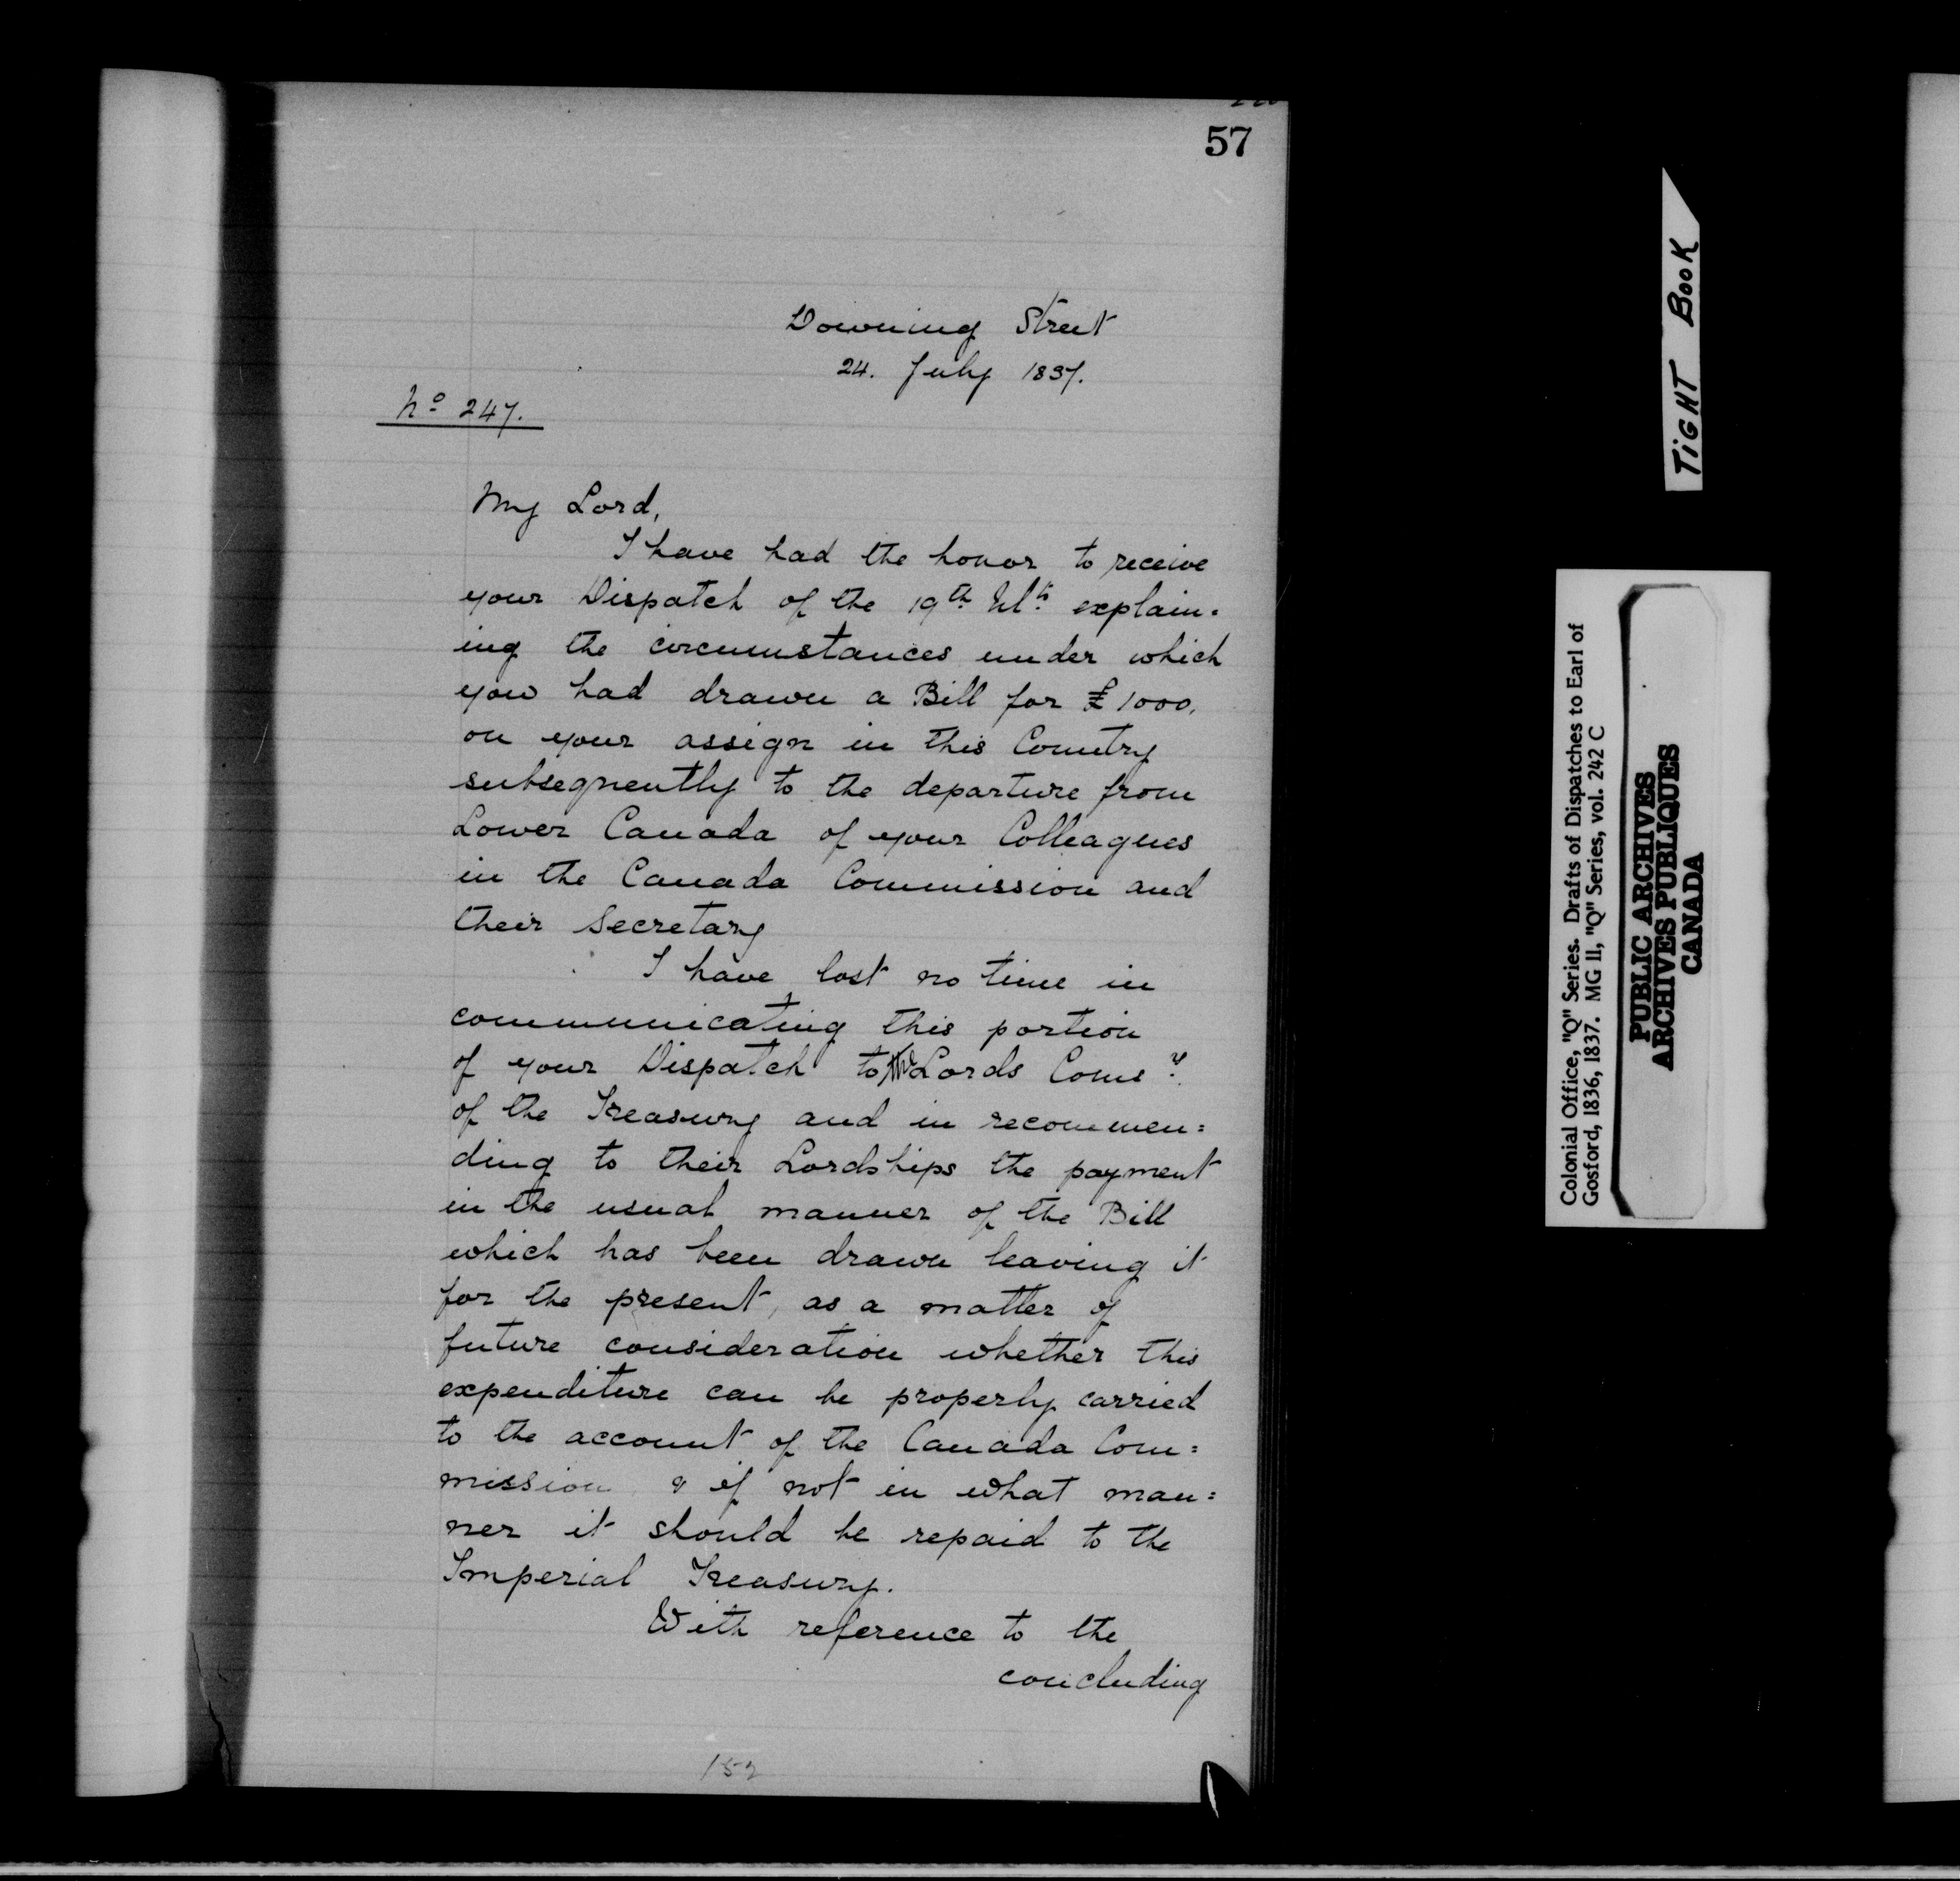 57
Downing Street
24. July 1837.
No 247.
My Lord,
I have had the honor to receive
your Dispatch of the 19th Ulto explain=
ing the circumstances under which
you had drawn a Bill for £1000.
on your assign in this Country
subsequently to the departure from
Lower Canada of your Colleagues
in the Canada Commission and
their Secretary
I have lost no time in
communicating this portion
of your Dispatch to the Lords Comrs
of the Treasury and in recommen=
ding to their Lordships the payment
in the usual manner of the Bill
which has been drawn leaving it
for the present, as a matter of
future consideration whether this
expenditure can be properly carried
to the account of the Canada Com=
mission & if not in what man=
ner it should be repaid to the
Imperial Treasury.
With reference to the
concluding
152
TIGHT BOOK
Colonial Office, "Q" Series. Drafts of Dispatches to Earl of
Gosford, 1836, 1837. MG 11, "Q" Series, vol. 242 C
PUBLIC ARCHIVES
ARCHIVES PUBLIQUES
CANADA